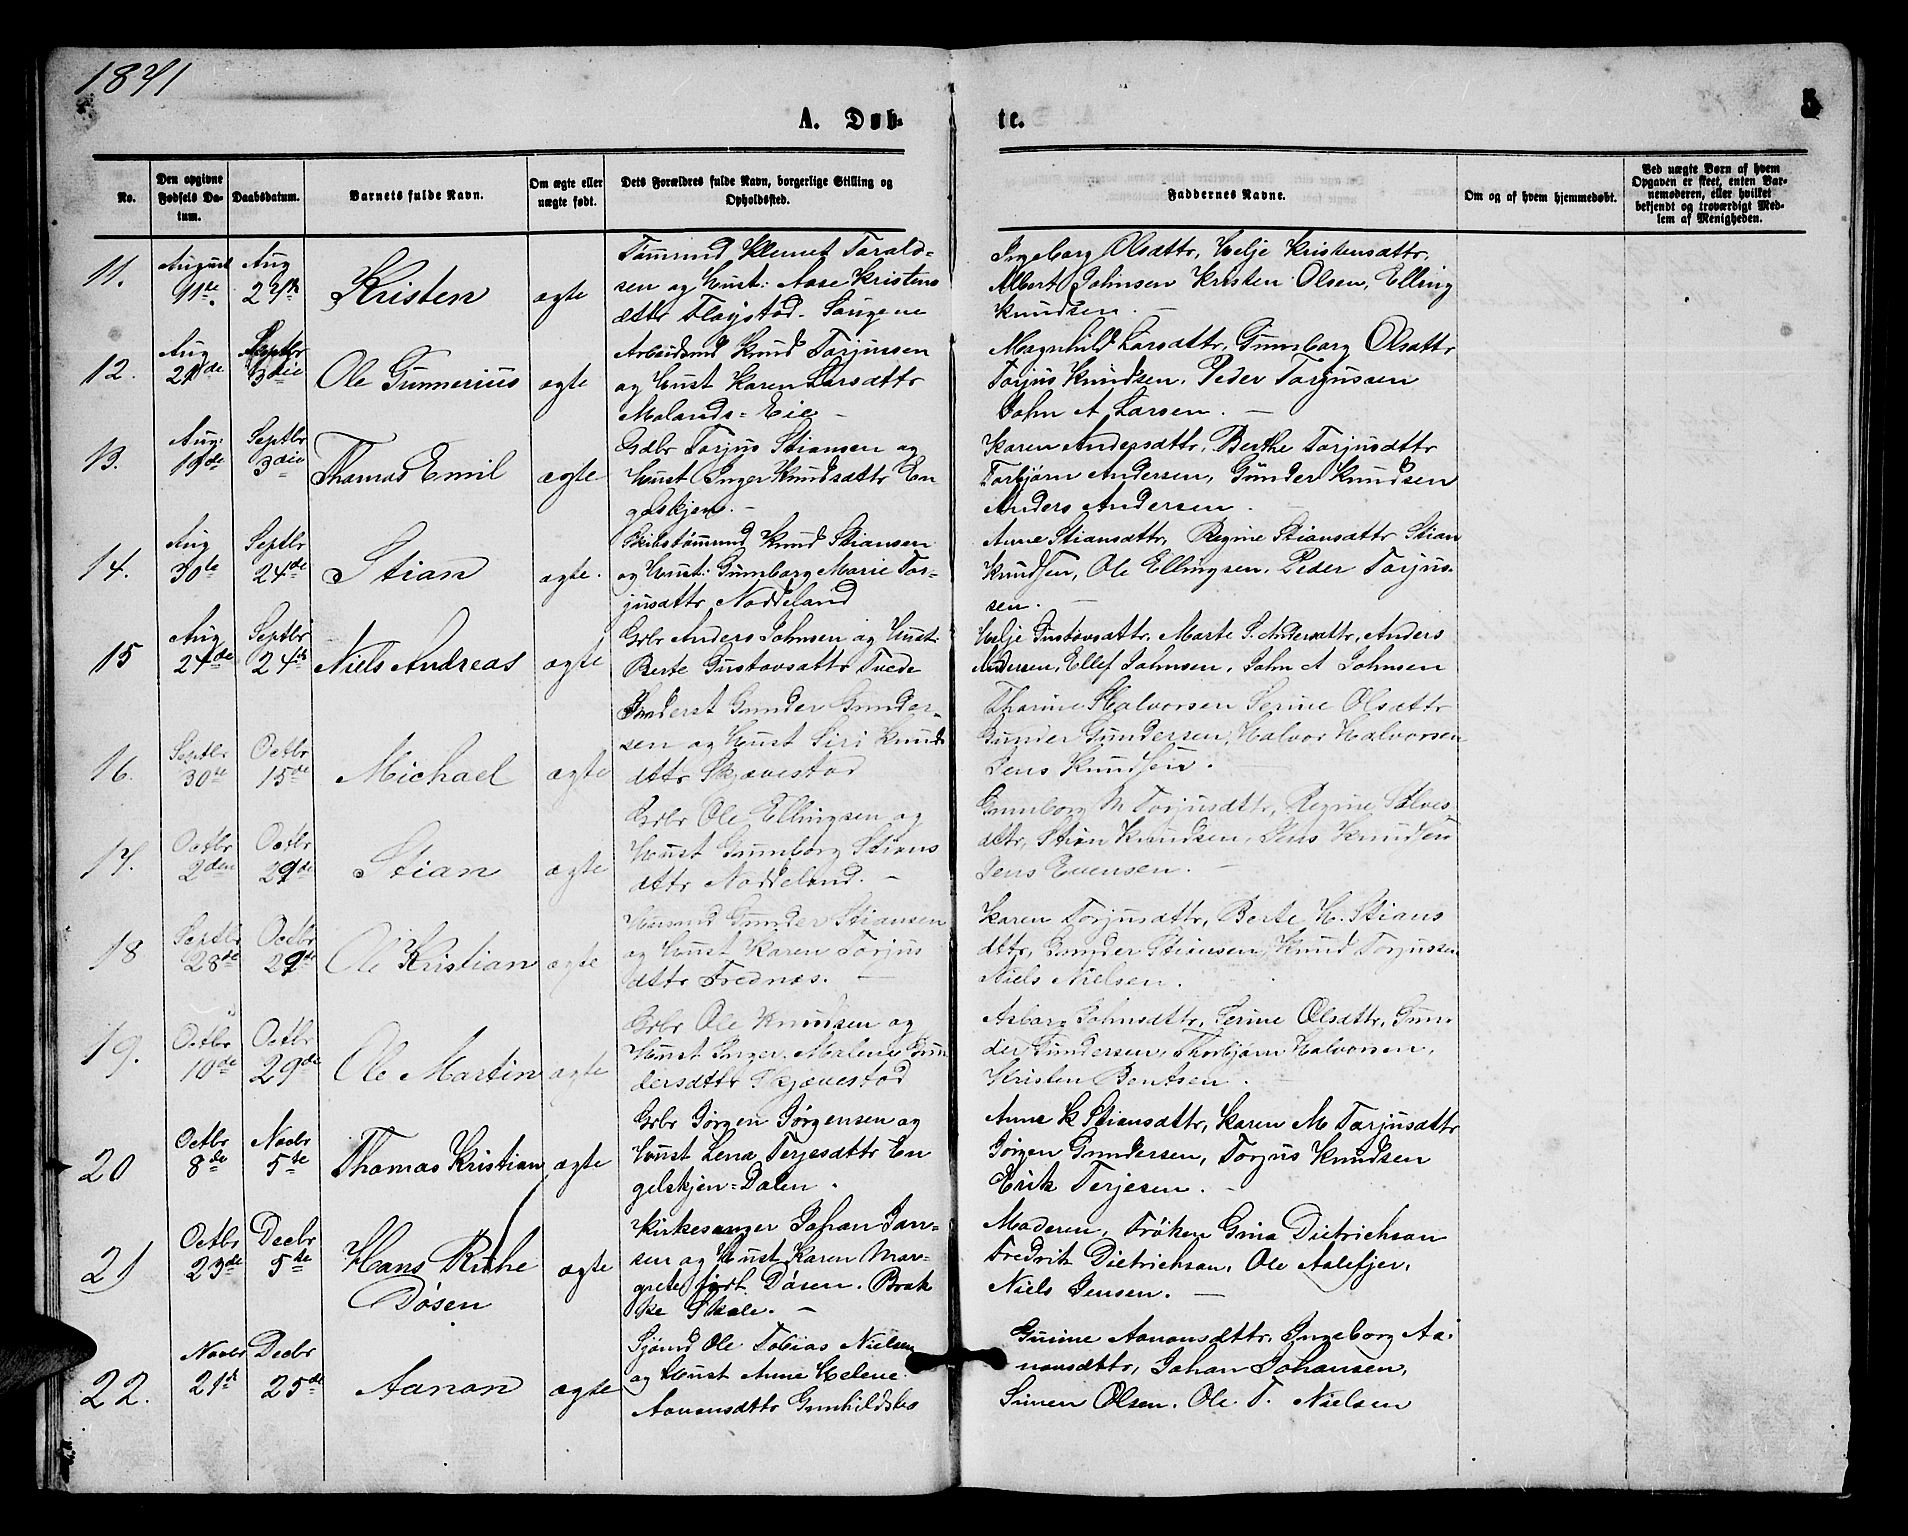 1871
5
A. Døb-
te.
No.
Den opgivne Fødsels Datum.
Daabsdatum.
Barnets fulde Navn.
Om ægte eller uægte født.
Dets Forældres fulde Navn, borgerlige Stilling og Opholdssted.
Faddernes Navne.
Om og af hvem hjemmedøbt.
Ved uægte Børn af hvem Opgaven er skeet, enten Barnemoderen, eller hvilket bekjendt og troværdigt Medlem af Menigheden.
11. August 11te Aug 27de Kristen ægte
Tømmnd Klemet Tarald-
sen og Hust: Aase Kristens
dttr Fløistad
Ingeborg Olsdttr, Helje Kristensdttr,
Albert Johnsen Kristen Olsen, Elling
Knudsen.
12. Aug 21de Septbr 3die Ole Gunnerius ægte
Arbeidsmd Knud Torjussen
og Hust Karen Larsdttr
Molands=Eie
Magnhild Larsdttr, Gunborg Olsdttr
Torjus Knudsen, Peder Torjussen
John A Larsen.
13. Aug: 19de Septbr 3die Thomas Emil ægte
Gdbr Torjus Stiansen og
Hust Inger Knudsdttr En
gelskjøns.
Karen Andersdttr, Berthe Torjusdttr
Torbjørn Andersen, Gunder Knudsen
Anders Andersen
14. Aug 30te Septbr 24de Stian ægte.
Skibstømmnd Knud Stiansen
og Hust: Gunborg Marie Tor-
jusdttr Noddeland
Anne Stiansdttr, Regine Stiansdttr Stian
Knudsen, Ole Ellingsen, Peder Torjus-
sen.
15 Aug 24de Septbr 24de Niels Andreas ægte
Grbr Anders Johnsen og Hust:
Berte Gustavsdttr Tvede
Helje Gustavsdttr, Marte S. Andersdttr, Anders
Andersen, Ellef Johnsen, John A Johnsen
16. Septbr 30te Octbr 15de Michael ægte
Inderst Gunder Gunder-
sen og Hust Siri Knuds
dttr Skjævestad
Thorine Halvorsen Serine Olsdttr
Gunder Gundersen, Halvor Halvorsen
Jens Knudsen.
17. Octbr 2den Octbr 29de Stian ægte
Grbr Ole Ellingsen og
Hust Gunborg Stians
dttr Noddeland.
Gunborg M Torjusdttr, Regine Salves
dttr, Stian Knudsen, Jens Knudsen
Jens Evensen.
18 Septbr 28de Octbr 29de Ole Kristian ægte
Husmd Gunder Stiansen
og Hust Karen Torjus
dttr Frednæs.
Karen Torjusdttr, Berte H. Stians
dttr, Gunder Stiansen, Knud Torjussen
Niels Nielsen.
19. Octbr 10de Octbr 29de Ole Martin ægte
Grbr Ole Knudsen og
Hust Inger Malene Gun
dersdttr Skjævestad
Asborg Johnsdttr, Serine Olsdttr, Gun-
der Gundersen, Thorbjørn Halvorsen,
Kristen Bentsen.
20 Octbr 8de Novbr 5te Thomas Kristian ægte
Grbr Jørgen Jørgensen og
Hust Lena Terjesdttr En
gelskjøn=Dalen.
Anne K Stiansdttr, Karen M Torjusdttr
Jørgen Gundersen, Torjus Knudsen
Erik Terjesen.
21 Octbr 23de Decbr 5te Hans Døsen ægte
Kirkesanger Johan Jan-
sen og Hust Karen Mar-
grete født Døsen. Brek
ke Skole.
Moderen, Frøken Gina Dietrichson
Fredrik Dietrichson, Ole Aalefjer,
Niels Jensen.
22. Novbr 21d Decbr 25de Aanon ægte
Sjømd Ole Tobias Nielsen
og Hust Anne Helene
Aanonsdttr Gunhildsbo
Gurine Aanonsdttr, Ingeborg Aa-
nonsdttr, Johan Johansen,
Simen Olsen, Ole T. Nielsen